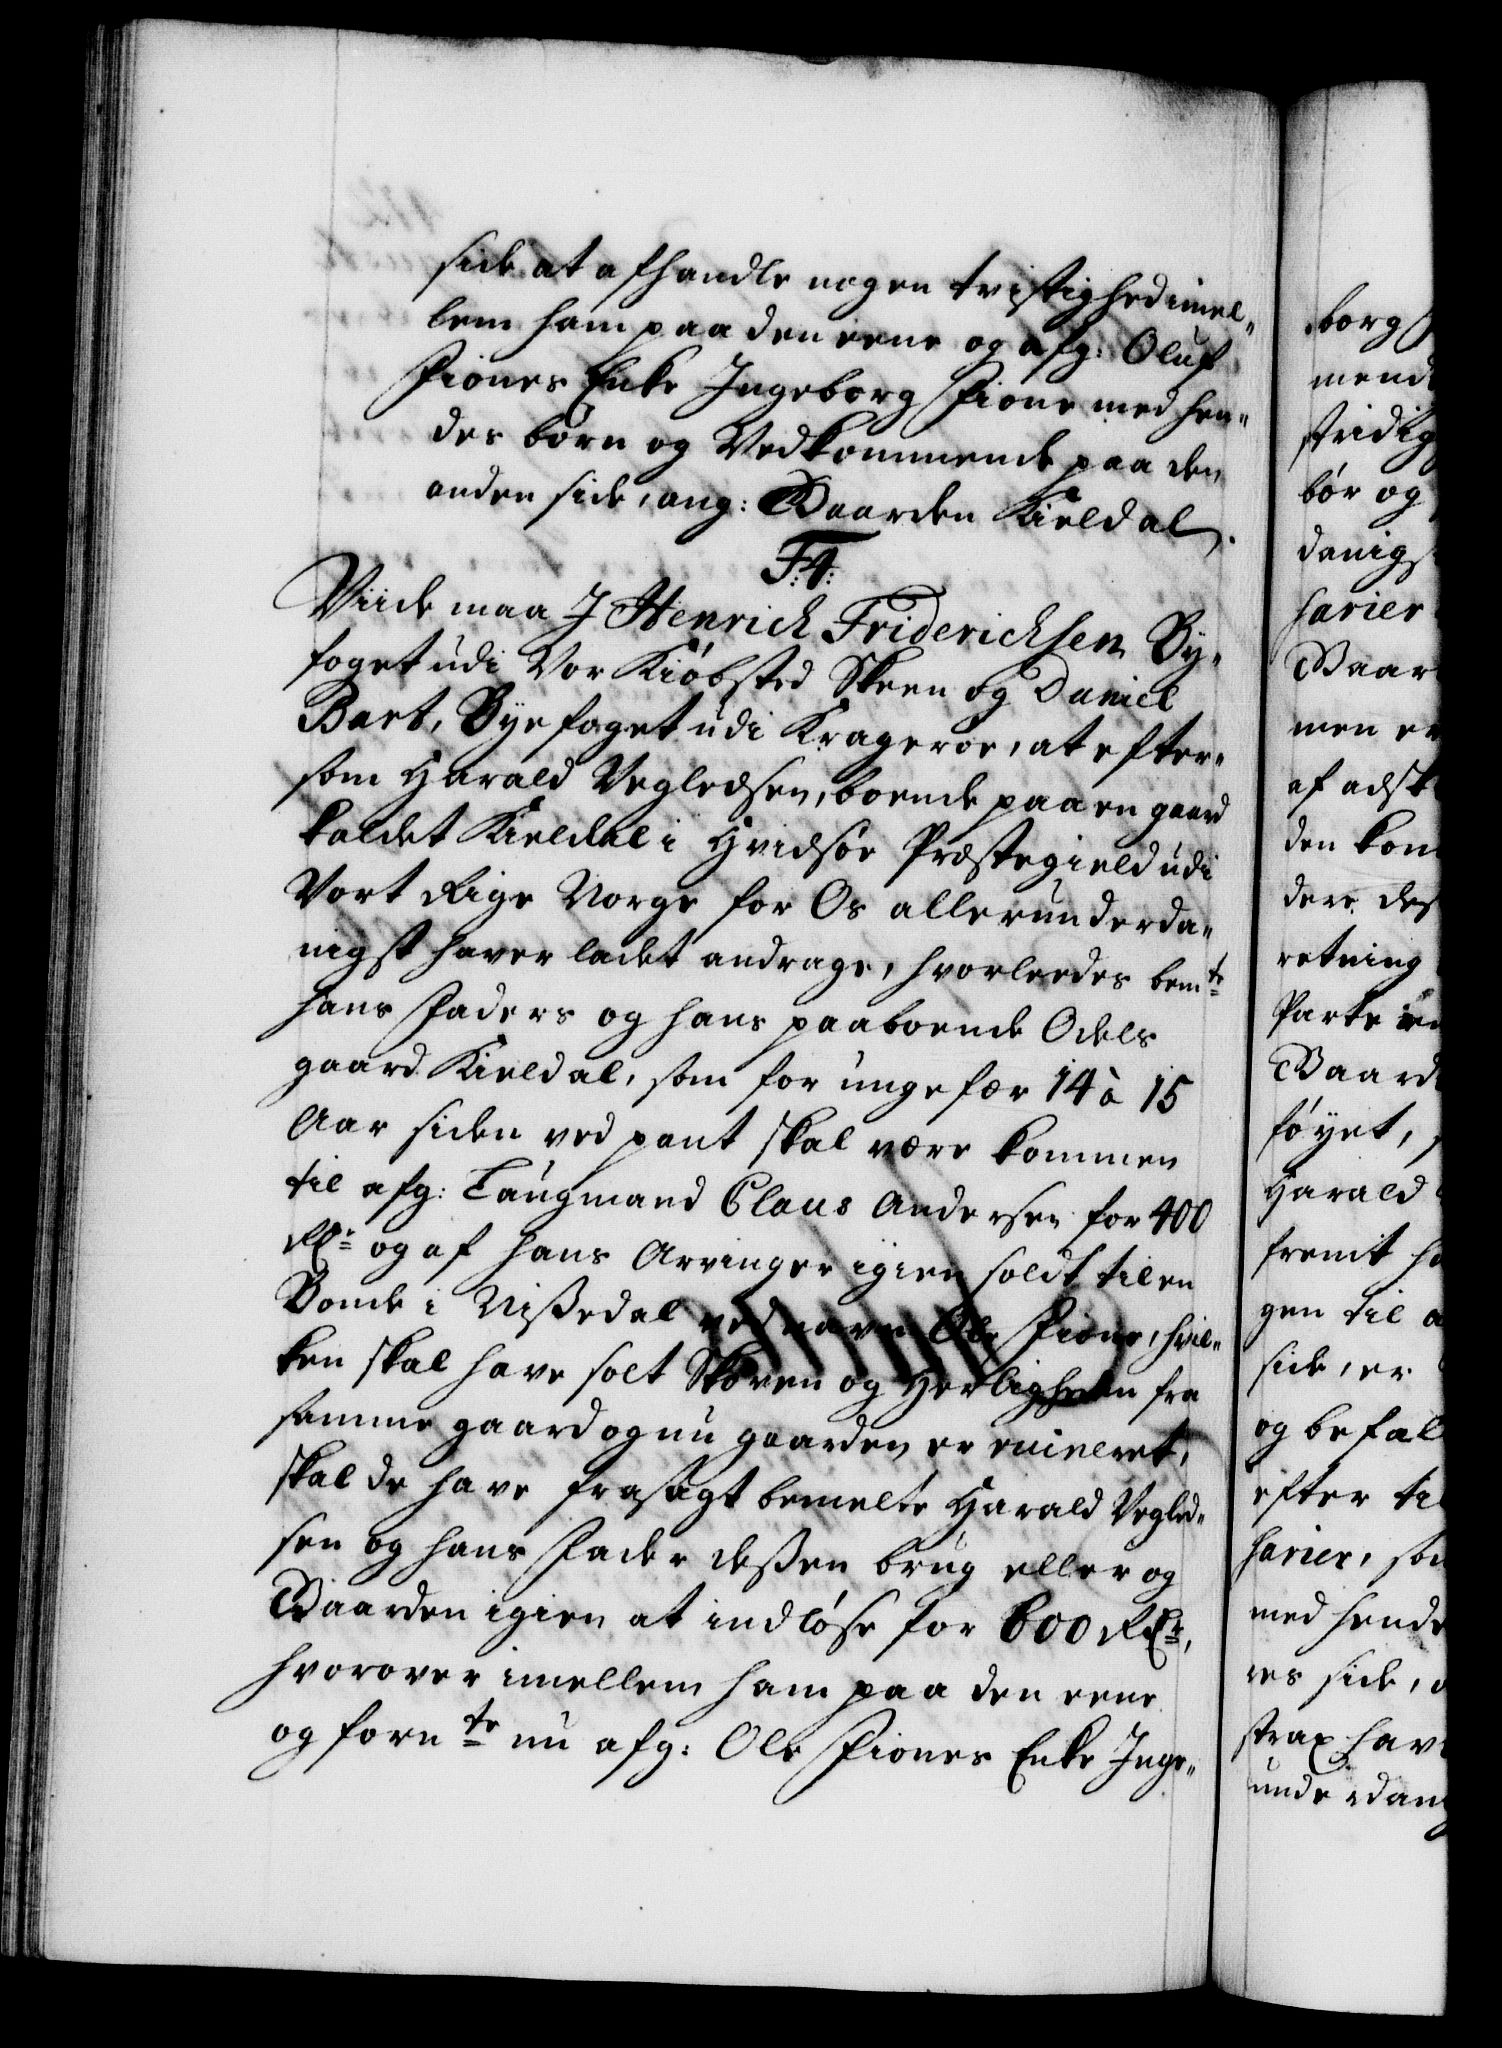 side at afhandle nogen tvistighed imel„
lem ham paa den eene og afg: Oluf
Fiones Enke Ingeborg Fione med hen„
des börn og Vedkommende paa den
anden side, ang: Gaarden Kieldal.
F: 4:
Viide maa I Henrich Friderichsen By„
foget udi Vor Kiöbsted Skeen og Daniel
Bart, Byefoget udi Krageröe, at efter„
som Harald Vegledsen, boende paa en gaard
kaldet Kieldal i Hvidsöe Præstegield udi
Vort Rige Norge for Os allerunderda„
nigst haver ladet andrage, hvorleedes bemte
hans Faders og hans paaboende Odels
gaard Kieldal, som for ungefær 14 à 15
Aar siden ved pant skal være kommen
til afg: Laugmand Claus Andersen for 400
Rdr og af hans Arvinger igien soldt til en
Bonde i Nissedal ved navn Ole Fione, hvil„
ken skal have solt Skoven og Herligheden fra
samme gaard og nu gaarden er ruineret,
skal de have frasagt bemelte Harald Vegled„
sen og hans Fader dessen brug eller og
Gaarden igien at indlöse for 600 Rdr,
hvorover imellem ham paa den eene
og fornte nu afg: Ole Fiones Enke Inge„
borg
mend
stridig
bör og
danigs
harier
Gaar
men er
af adsk
den kom
dere des
retning
Parte
Gaard
föyet,
Harald
fremt ha
gen til a
side, er
og befal
efter til
harier, som
med hende
res side, o
strax have
underdan